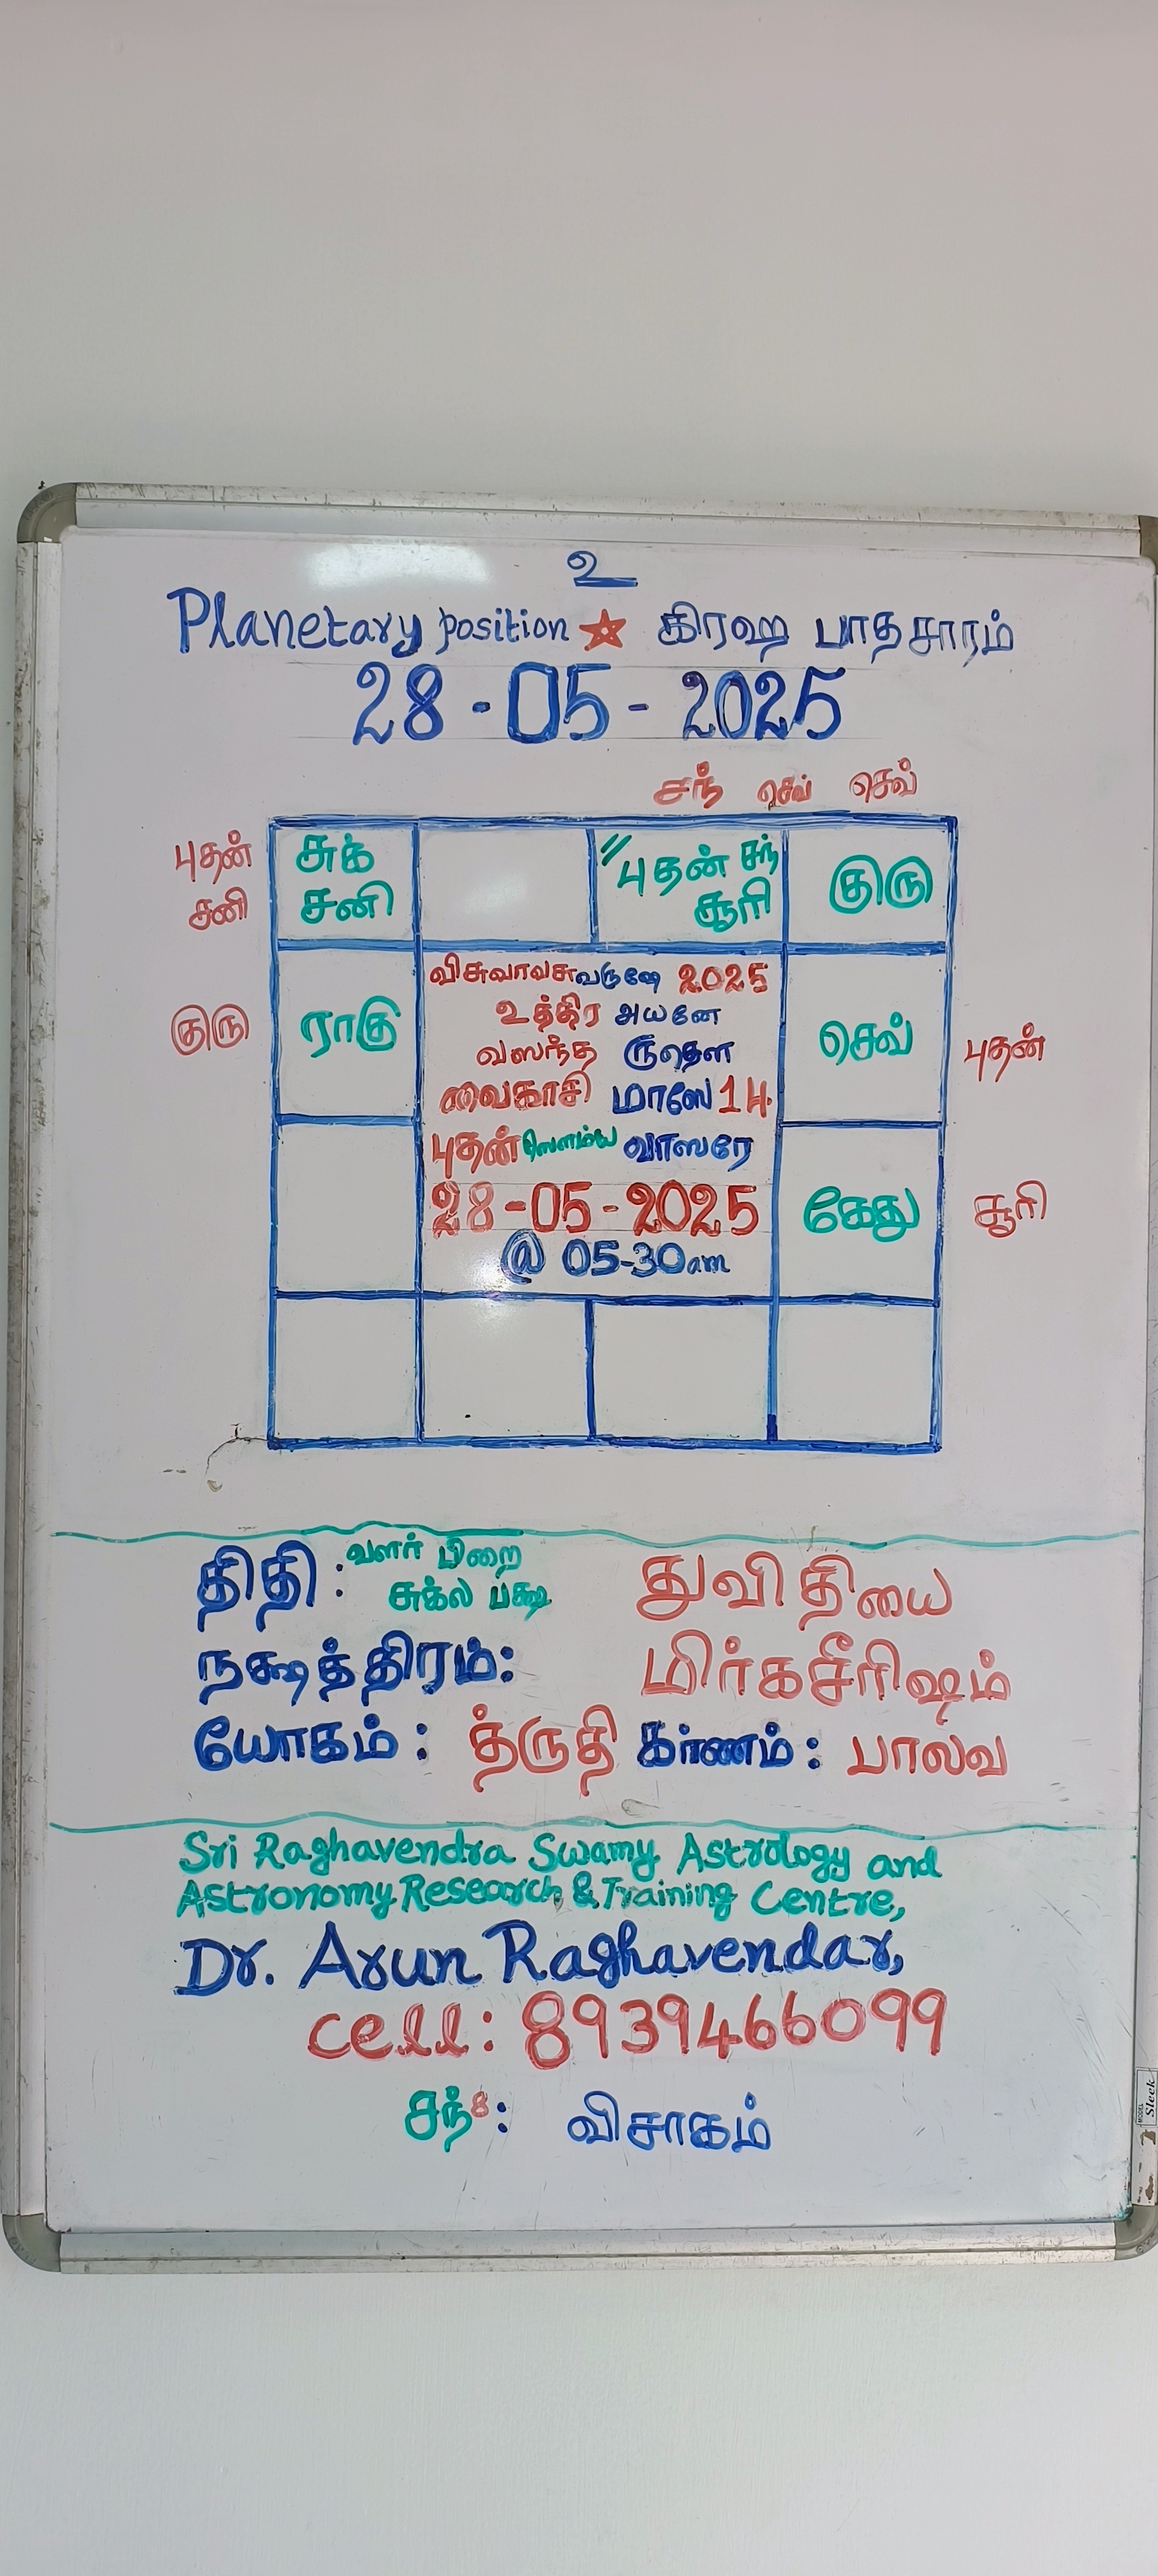 உ
Planetary position கிரஹ பாதசாரம்
28-05-2025
சந் செவ் செவ்
புதன் சுக் //புதன் சந் குரு
சனி சனி சூரி
குரு ராகு செவ் புதன்
விசுவாவசுவருஷே 2025
உத்திர அயனே
வஸந்த ருதௌ
வைகாசி மாஸே 14
புதன் ஸௌம்ய வாஸரே
28-05-2025
@ 05-30am
கேது சூரி
திதி: வளர் பிறை துவிதியை
சுக்ல பக்ஷ
நக்ஷத்திரம்: மிர்கசீரிஷம்
யோகம்: த்ருதி கர்ணம்: பாலவ
Sri Raghavendra Swamy Astrology and
Astronomy Research & Training Centre,
Dr. Arun Raghavendar,
cell: 8939466099
சந்8: விசாகம்
MODEL Sleek